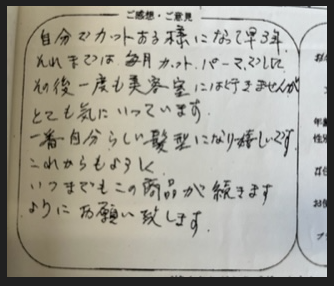 ご感想・ご意見
自分でカットする様になって早3年
それまでは、毎月カット、パーマでした
その後一度も美容室には行きませんが
とても気にいっています。
一番自分らしい髪型になり嬉しいです。
これからもよろしく
いつまでもこの商品が続きます
ようにお願い致します。
年齢
性別